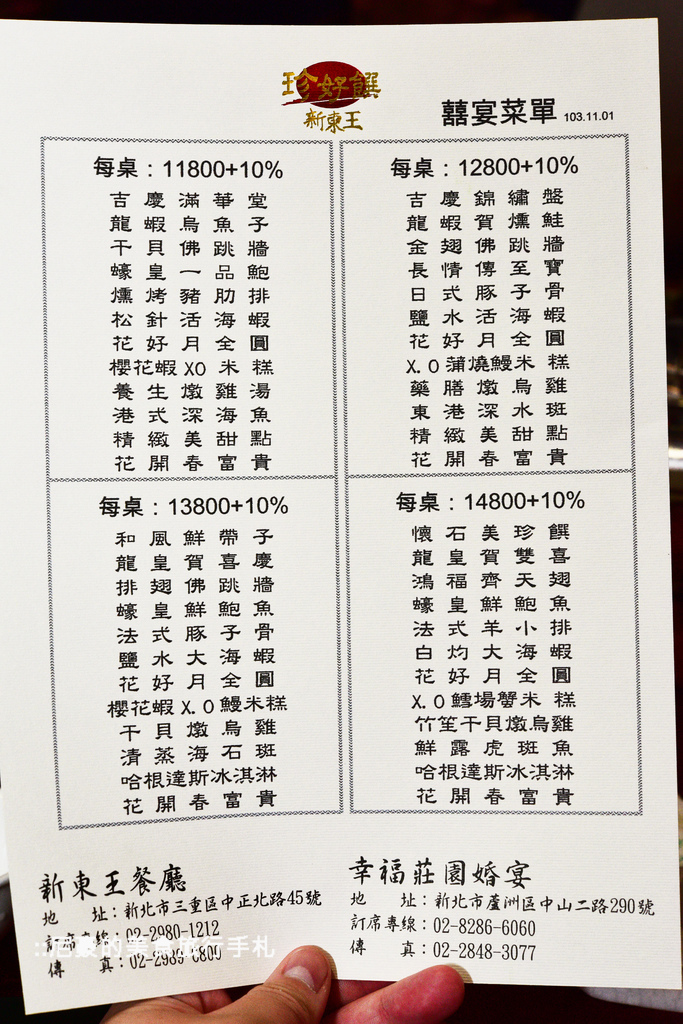 珍好饌
新東王
囍宴菜單 103.11.01
每桌：11800+10%
吉慶滿華堂
龍蝦烏魚子
干貝佛跳牆
蠔皇一品鮑
燻烤豬肋排
松針活海蝦
花好月全圓
櫻花蝦XO米糕
養生燉雞湯
港式深海魚
精緻美甜點
花開春富貴
每桌：12800+10%
吉慶錦繡盤
龍蝦賀燻鮭
金翅佛跳牆
長情傳至寶
日式豚子骨
鹽水活海蝦
花好月全圓
X.O蒲燒鰻米糕
藥膳燉烏雞
東港深水斑
精緻美甜點
花開春富貴
每桌：13800+10%
和風鮮帶子
龍皇賀喜慶
排翅佛跳牆
蠔皇鮮鮑魚
法式豚子骨
鹽水大海蝦
花好月全圓
櫻花蝦X.O鰻米糕
干貝燉烏雞
清蒸海石斑
哈根達斯冰淇淋
花開春富貴
每桌：14800+10%
懷石美珍饌
龍皇賀雙喜
鴻福齊天翅
蠔皇鮮鮑魚
法式羊小排
白灼大海蝦
花好月全圓
X.O鱈場蟹米糕
竹笙干貝燉烏雞
鮮露虎斑魚
哈根達斯冰淇淋
花開春富貴
新東王餐廳
地 址：新北市三重區中正北路45號
訂席專線：02-2980-1212
傳 真：02-2989-0800
幸福莊園婚宴
地 址：新北市蘆洲區中山二路290號
訂席專線：02-8286-6060
傳 真：02-2848-3077
的美食旅行手札